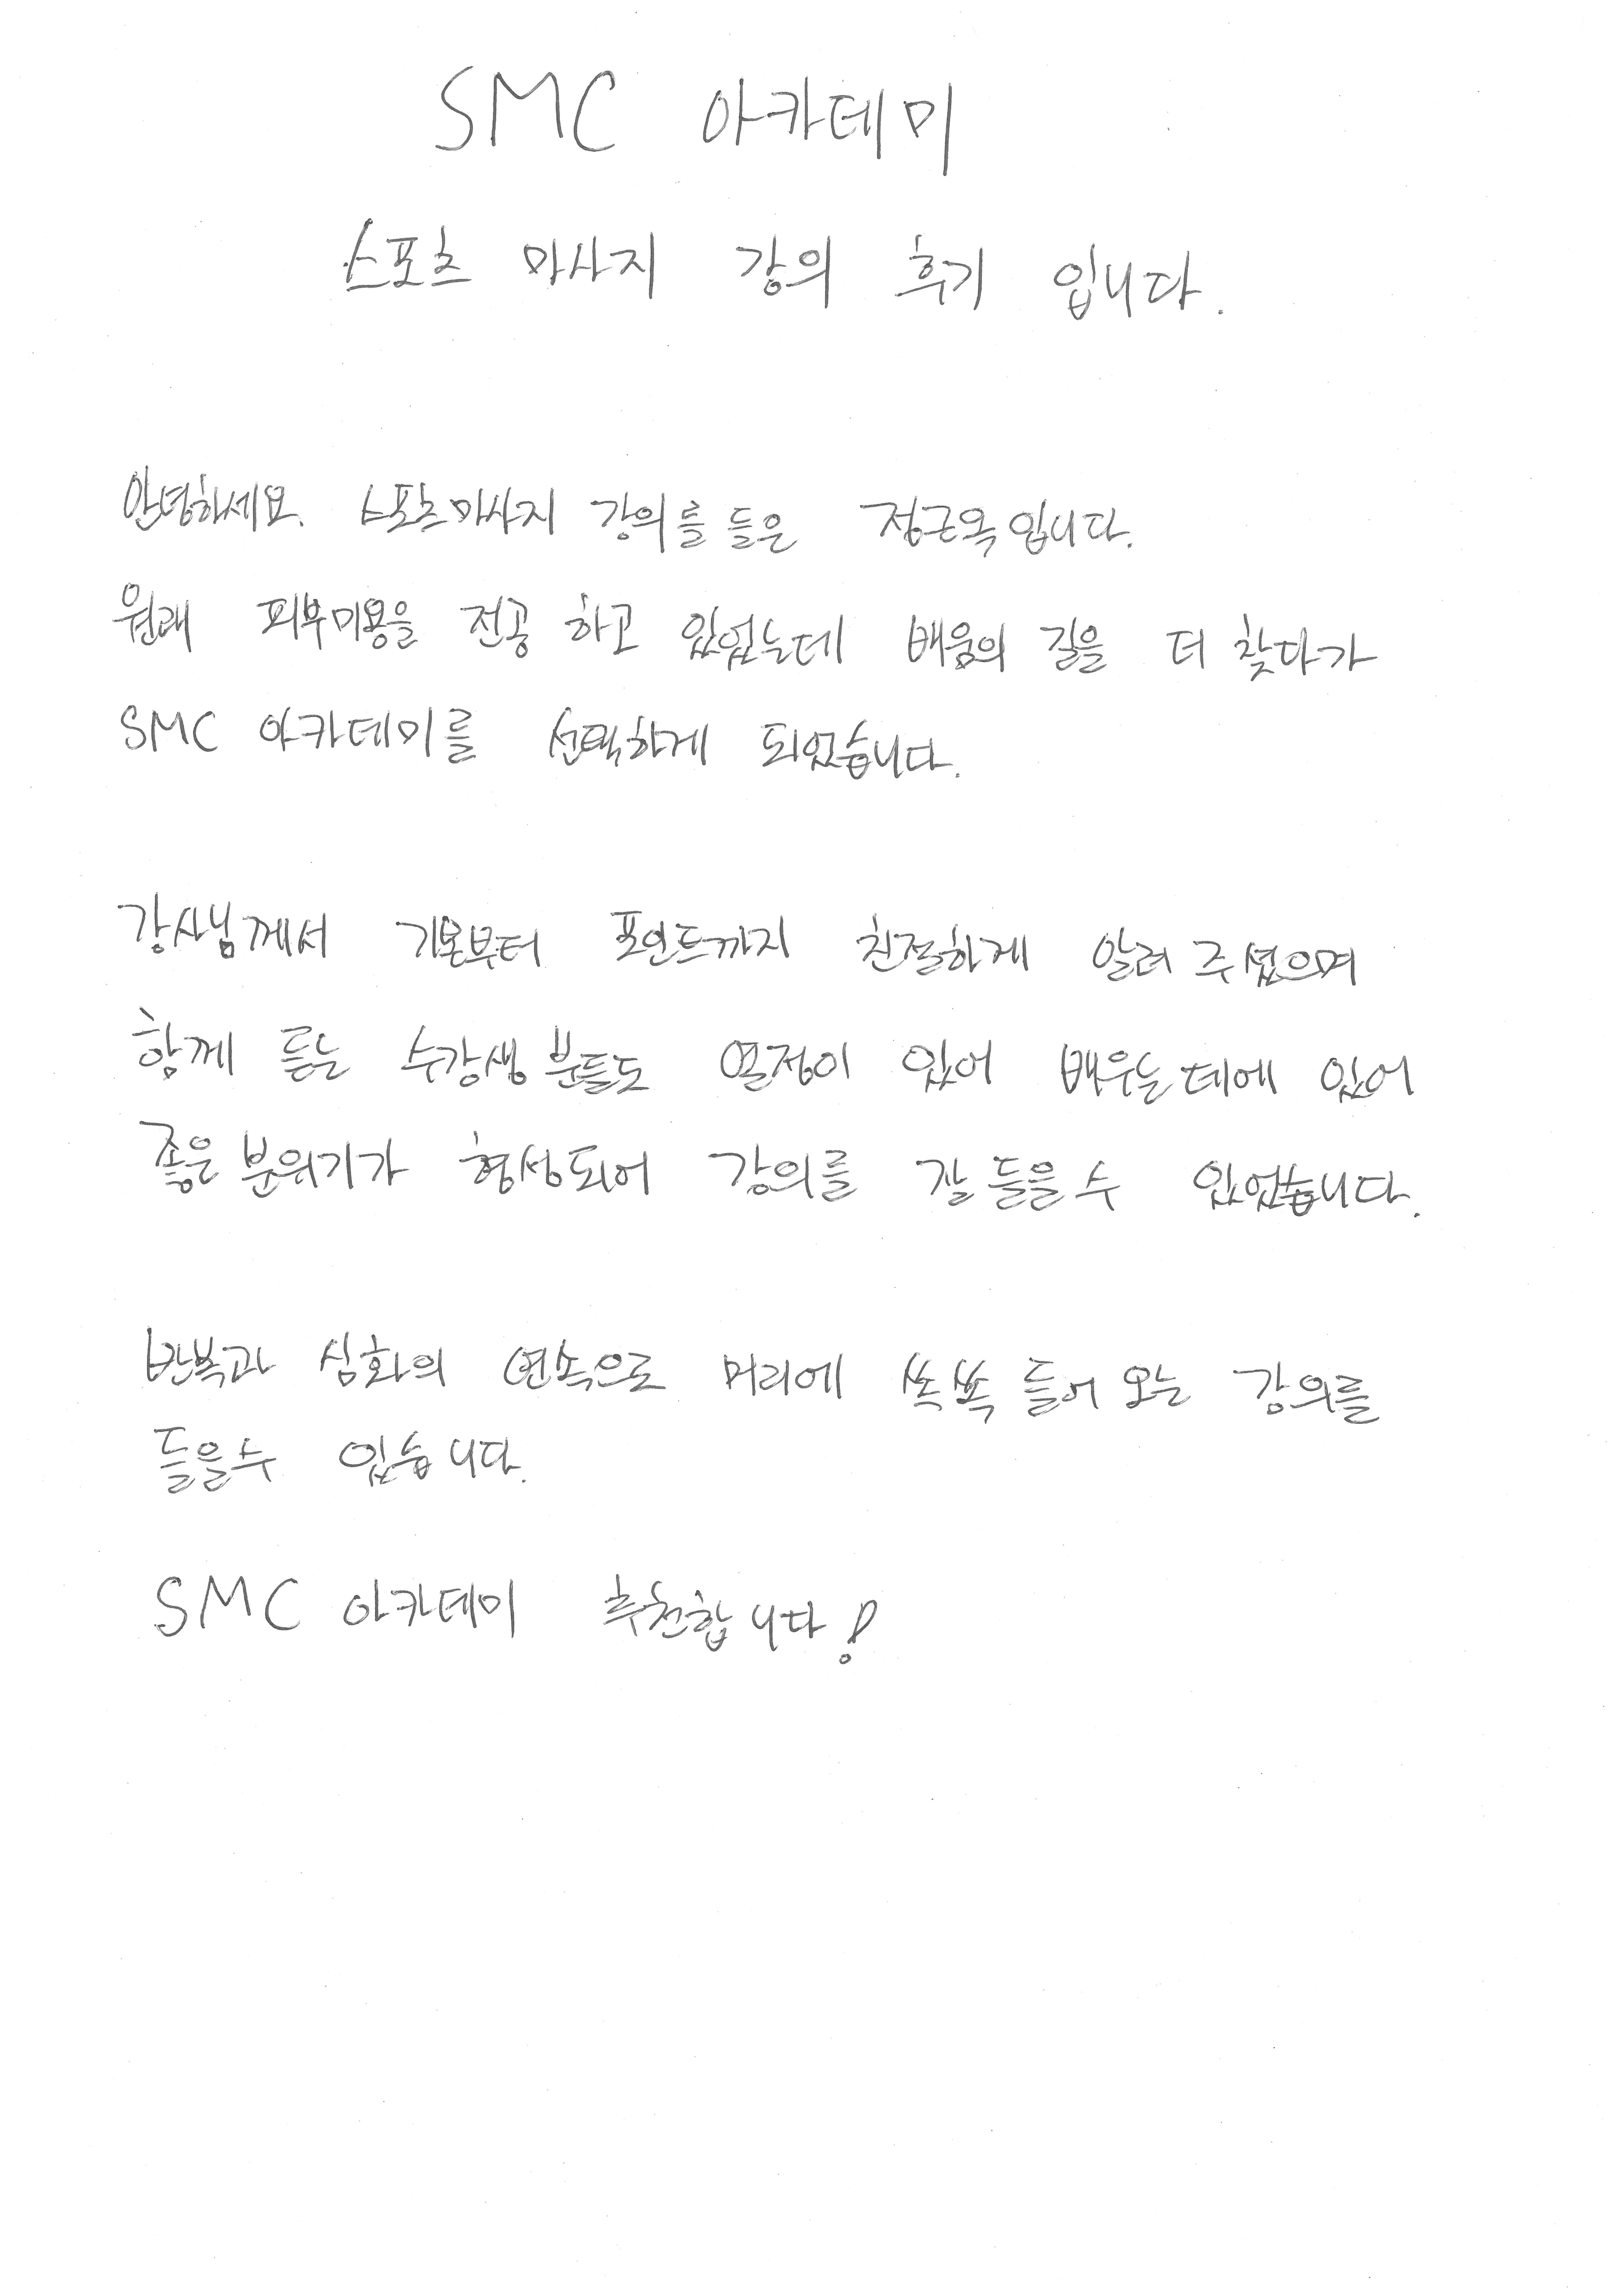 SMC 아카데미
스포츠 마사지 강의 후기 입니다.
안녕하세요. 스포츠마사지 강의를 들은 정근옥입니다.
원래 피부미용을 전공 하고 있었는데 배움의 길을 더 찾다가
SMC 아카데미를 선택하게 되었습니다.
강사님께서 기본부터 포인트까지 친절하게 알려 주셨으며
함께 듣는 수강생 분들도 열정이 있어 배우는 데에 있어
좋은 분위기가 형성되어 강의를 잘 들을 수 있었습니다.
반복과 심화의 연속으로 머리에 쏙쏙 들어 오는 강의를
들을 수 있습니다.
SMC 아카데미 추천합니다!